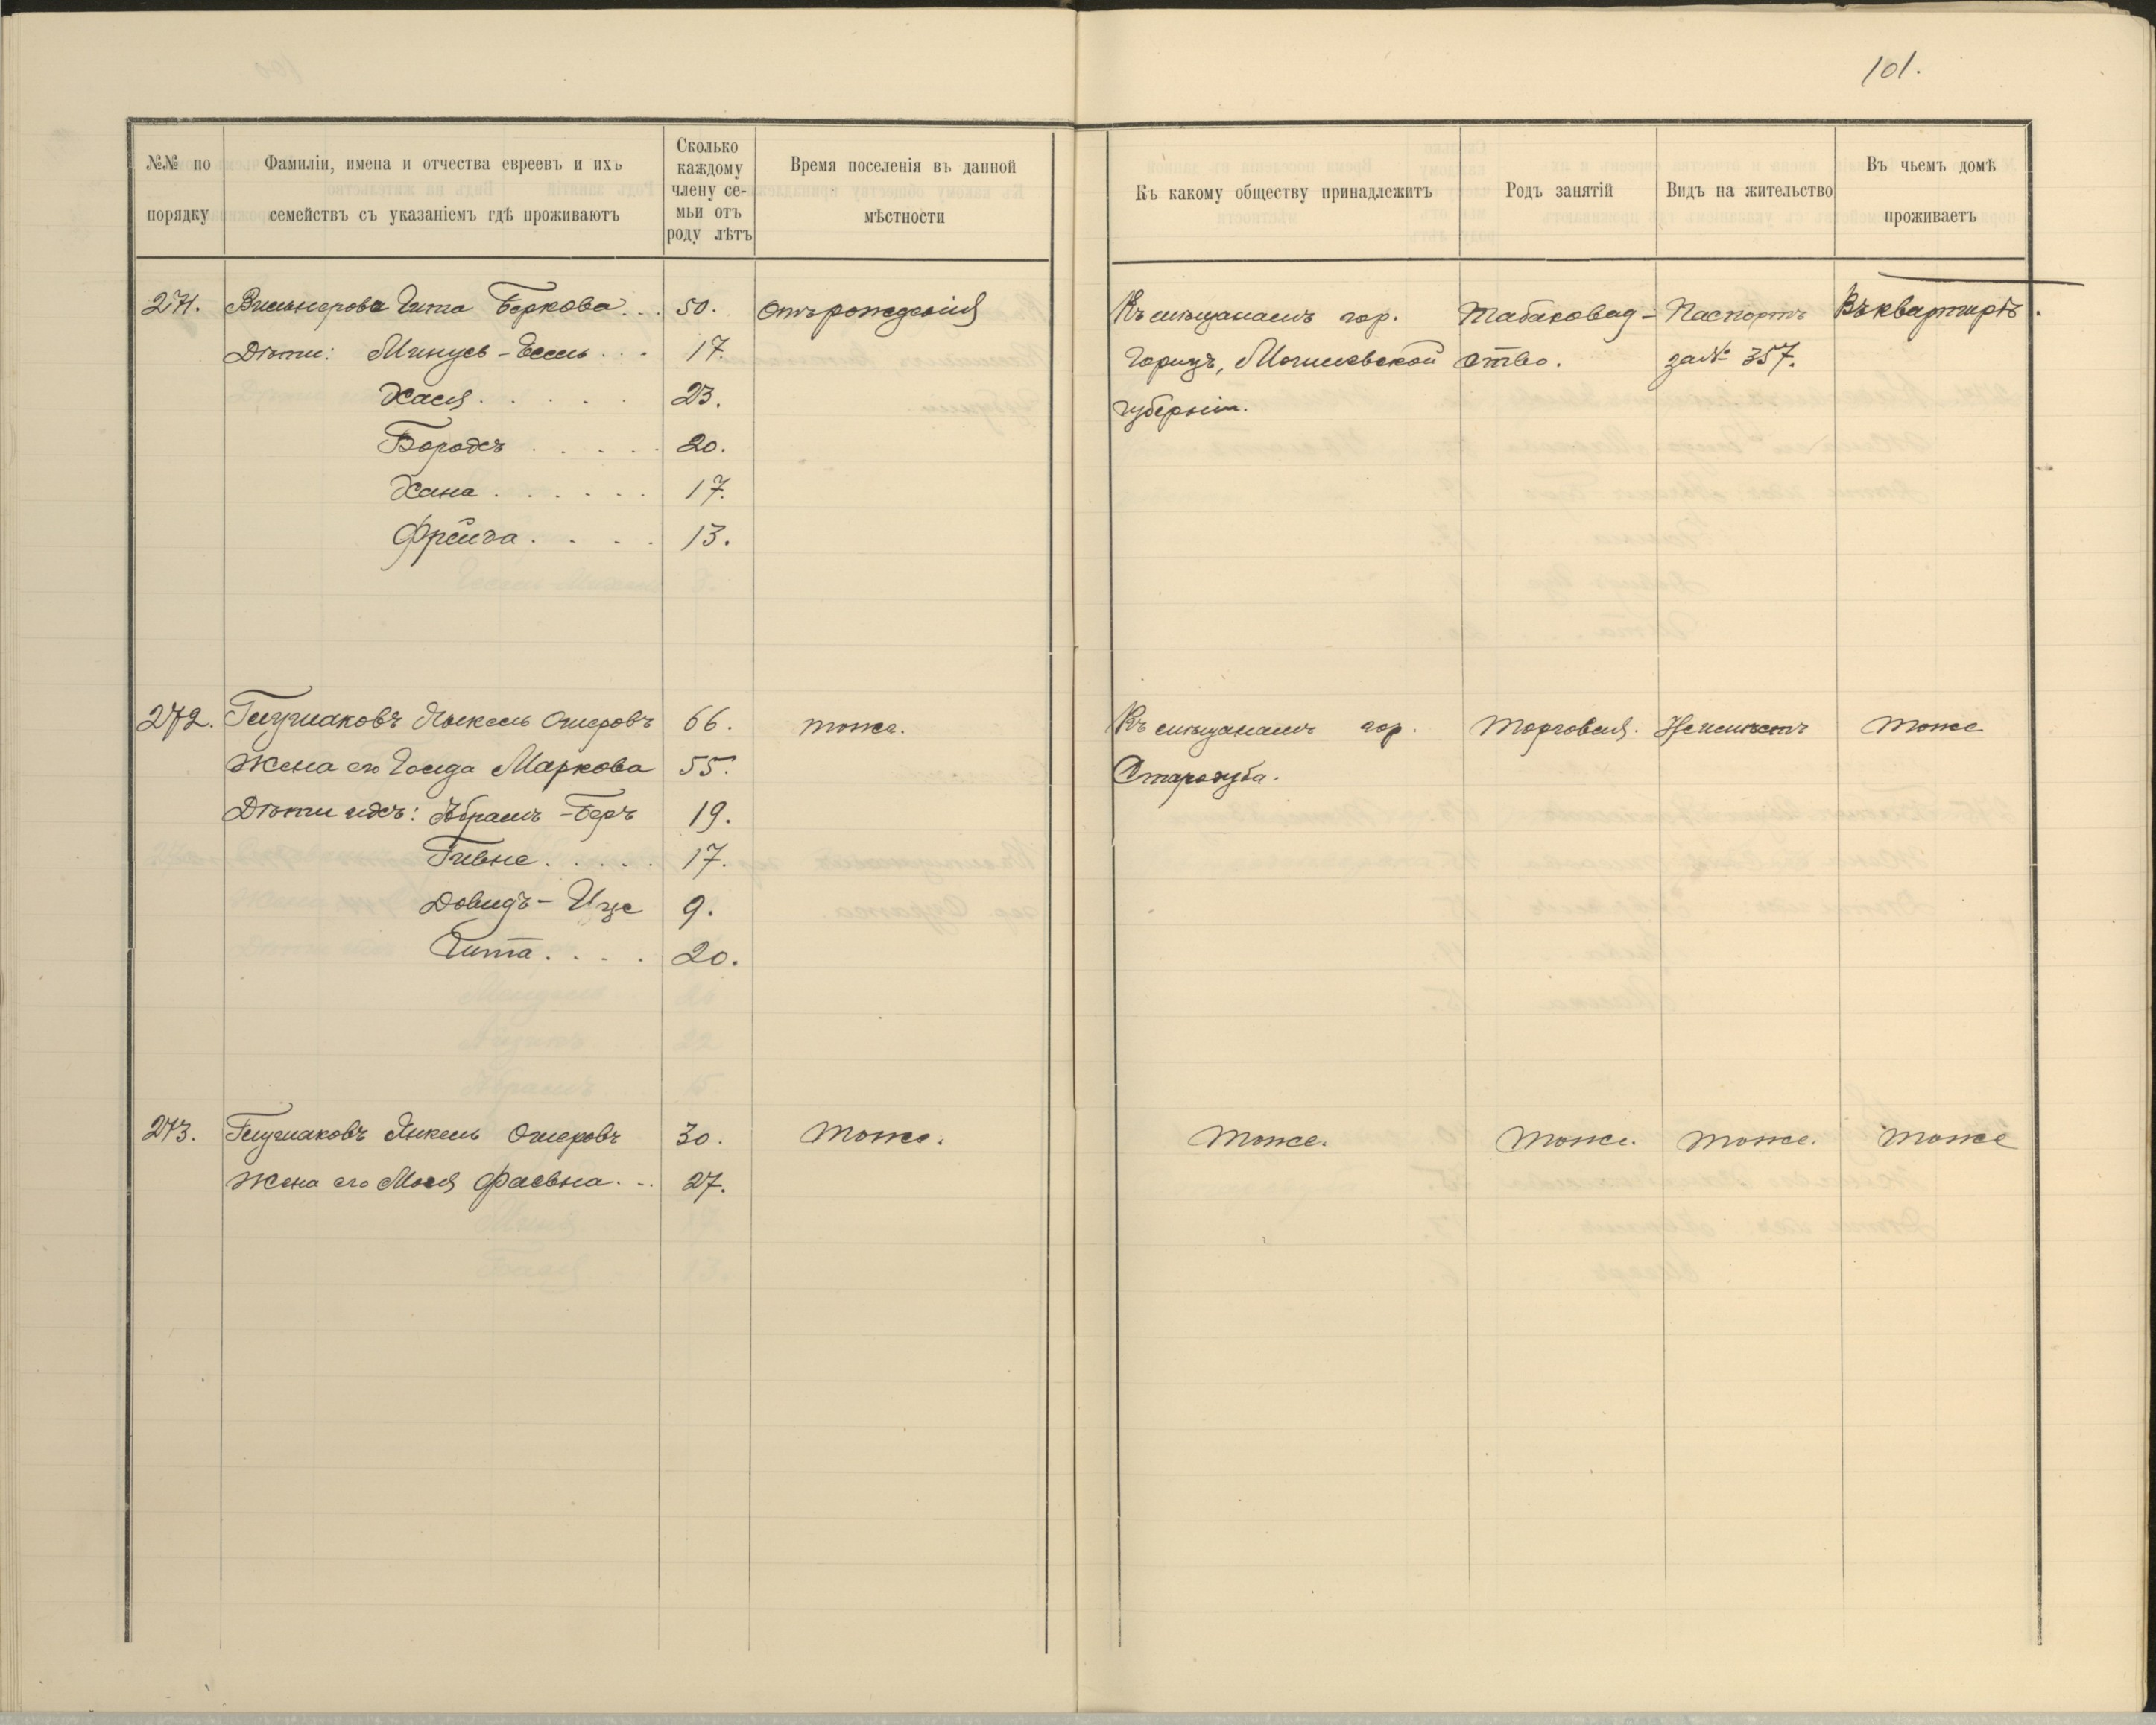 101.
№№ по порядку
Фамиліи, имена и отчества евреевъ и ихъ семействъ съ указаніемъ гдѣ проживаютъ
Сколько каждому члену се-мьи отъ роду лѣтъ
Время поселенія въ данной мѣстности
Къ какому обществу принадлежитъ
Родъ занятій
Видъ на жительство
Въ чьемъ домѣ проживаетъ
271. Вильнерова Гита Беркова . . . 50. Отъ рожденія Къ мѣщанамъ гор. Табаковод- Паспортъ Въ квартирѣ.
Дѣти: Минусъ - Есель . . . 17. Горизъ, Могилевской ство. за № 357.
Хася . . . . . 23. губерніи.
Бородхъ . . . . . 20.
Хана . . . . . . 17.
Фрейда . . . . 13.
272. Глугмаковъ Ошеровъ 66. тоже. Къ мѣщанамъ гор. Торговля. Неимѣетъ тоже
Жена его Маркова 55. Стародуба.
Дѣти ихъ: Абрамъ - Беръ 19.
Гивне . . . . . 17.
Довидъ - Ице 9.
Гита . . . . 20.
273. Глугмаковъ Янкель Ошеровъ 30. тоже. тоже. тоже. тоже. тоже
Жена его Мася Фаевна . .. 27.